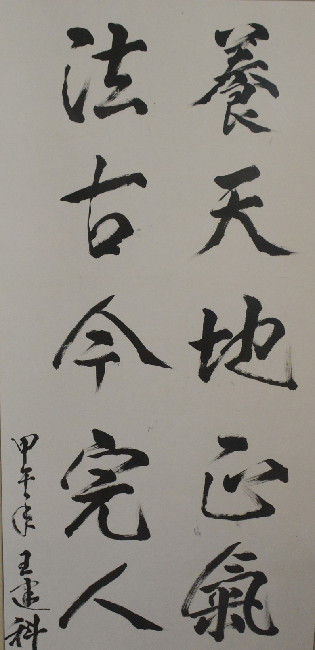 養天地正氣
法古今完人
甲午年 王建科